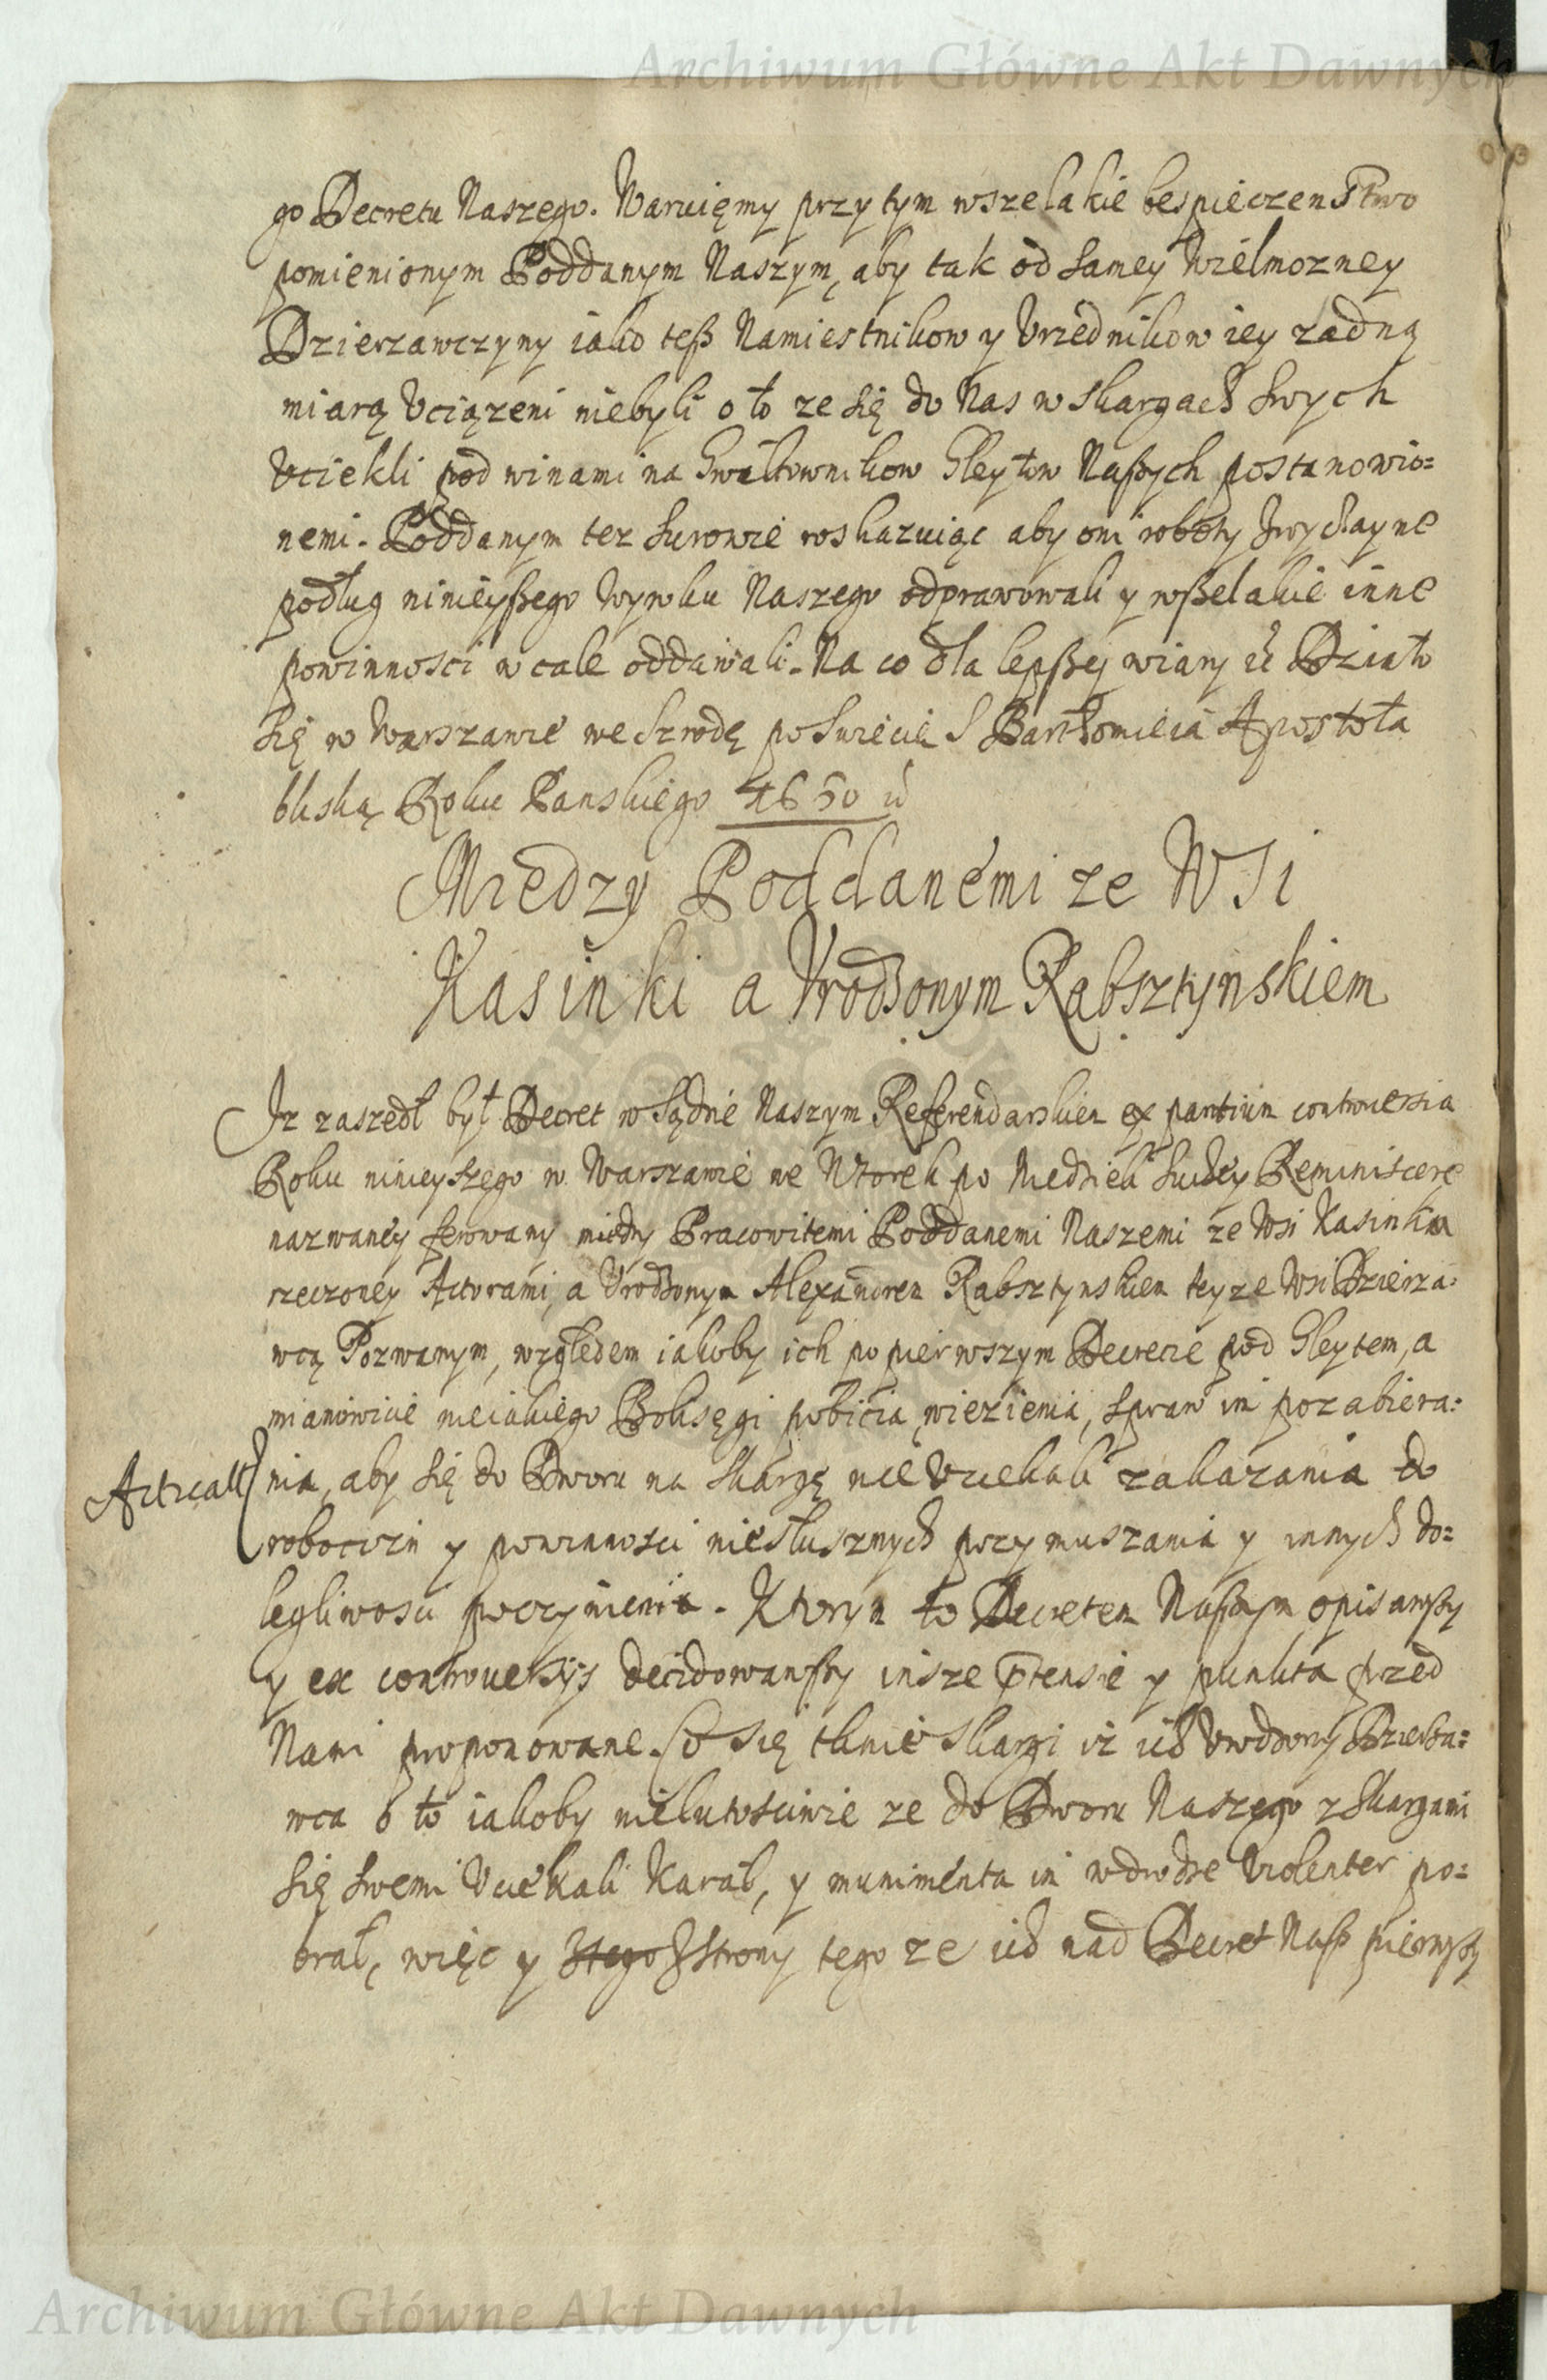 Archiwum Główne Akt Dawnych
go Decretu Naszego. Waruięmy przy tym wszelakie bespieczenstwo
pomienionym Poddanym Naszym, aby tak od samey Wielmozney
Dzierzawczyny iako teß Namiestnikow y Vrzednikow iey zadną
miarą Vciązeni niebyli o to ze się do Nas w skargach swych
Vciekli pod winami na Gwałtownikow Gleytow Naßych postanowio=
nemi. Poddanym tez surowie roskazuiąc aby oni roboty zwyczayne
podług ninieyßego Wyroku Naszego odprawowali y wßelakie inne
powinnosci w cale oddawali. Na co dla lepßey wiary &c Działo
się w Warszawie we Szrodę po Swięcie S Bartłomieia Apostoła
bliską Roku Panskiego 1650 &c
Miedzy Poddanemi ze WSi
Kasinki a Vrodzonym Rabsztynskiem
Iz zaszedł był Decret w Sądzie Naszym Referendarskiem ex partium controuersia
Roku ninieyszego w Warszawie we Wtorek po Niedzieli Suchey Reminiscere
nazwaney ferowany miedzy Pracowitemi Poddanemi Naszemi ze Wsi Kasinka
rzeczoney Actorami, a Vrodzonym Alexandrem Rabsztynskiem teyze Wsi Dzierza=
wcą Pozwanym, względem iakoby ich po pierwszym Decrecie pod Gleytem, a
mianowicie nieiakiego Boksęgi pobicia, więzienia, spraw im pozabiera=
nia, aby się do Dworu na skargę nie Vciekali zakazania do
robocizn y powinnosci niesłusznych przymuszania y innych do=
legliwosci poczynienia. Ktorym to Decretem Naßym opisawßy
y ex controuersijs decidowawßy insze ptensie y punkta przed
Nami proponowane. Co się tknie skargi iż ich Vrodzony Dzierza=
wca o to iakoby nielutosciwie ze do Dworu Naszego z skargami
się swemi Vciekali karał, y munimenta im w drodze violenter po=
brał, więc y z strony tego ze ich nad Decret Naß pierwßy
Archiwum Główne Akt Dawnych